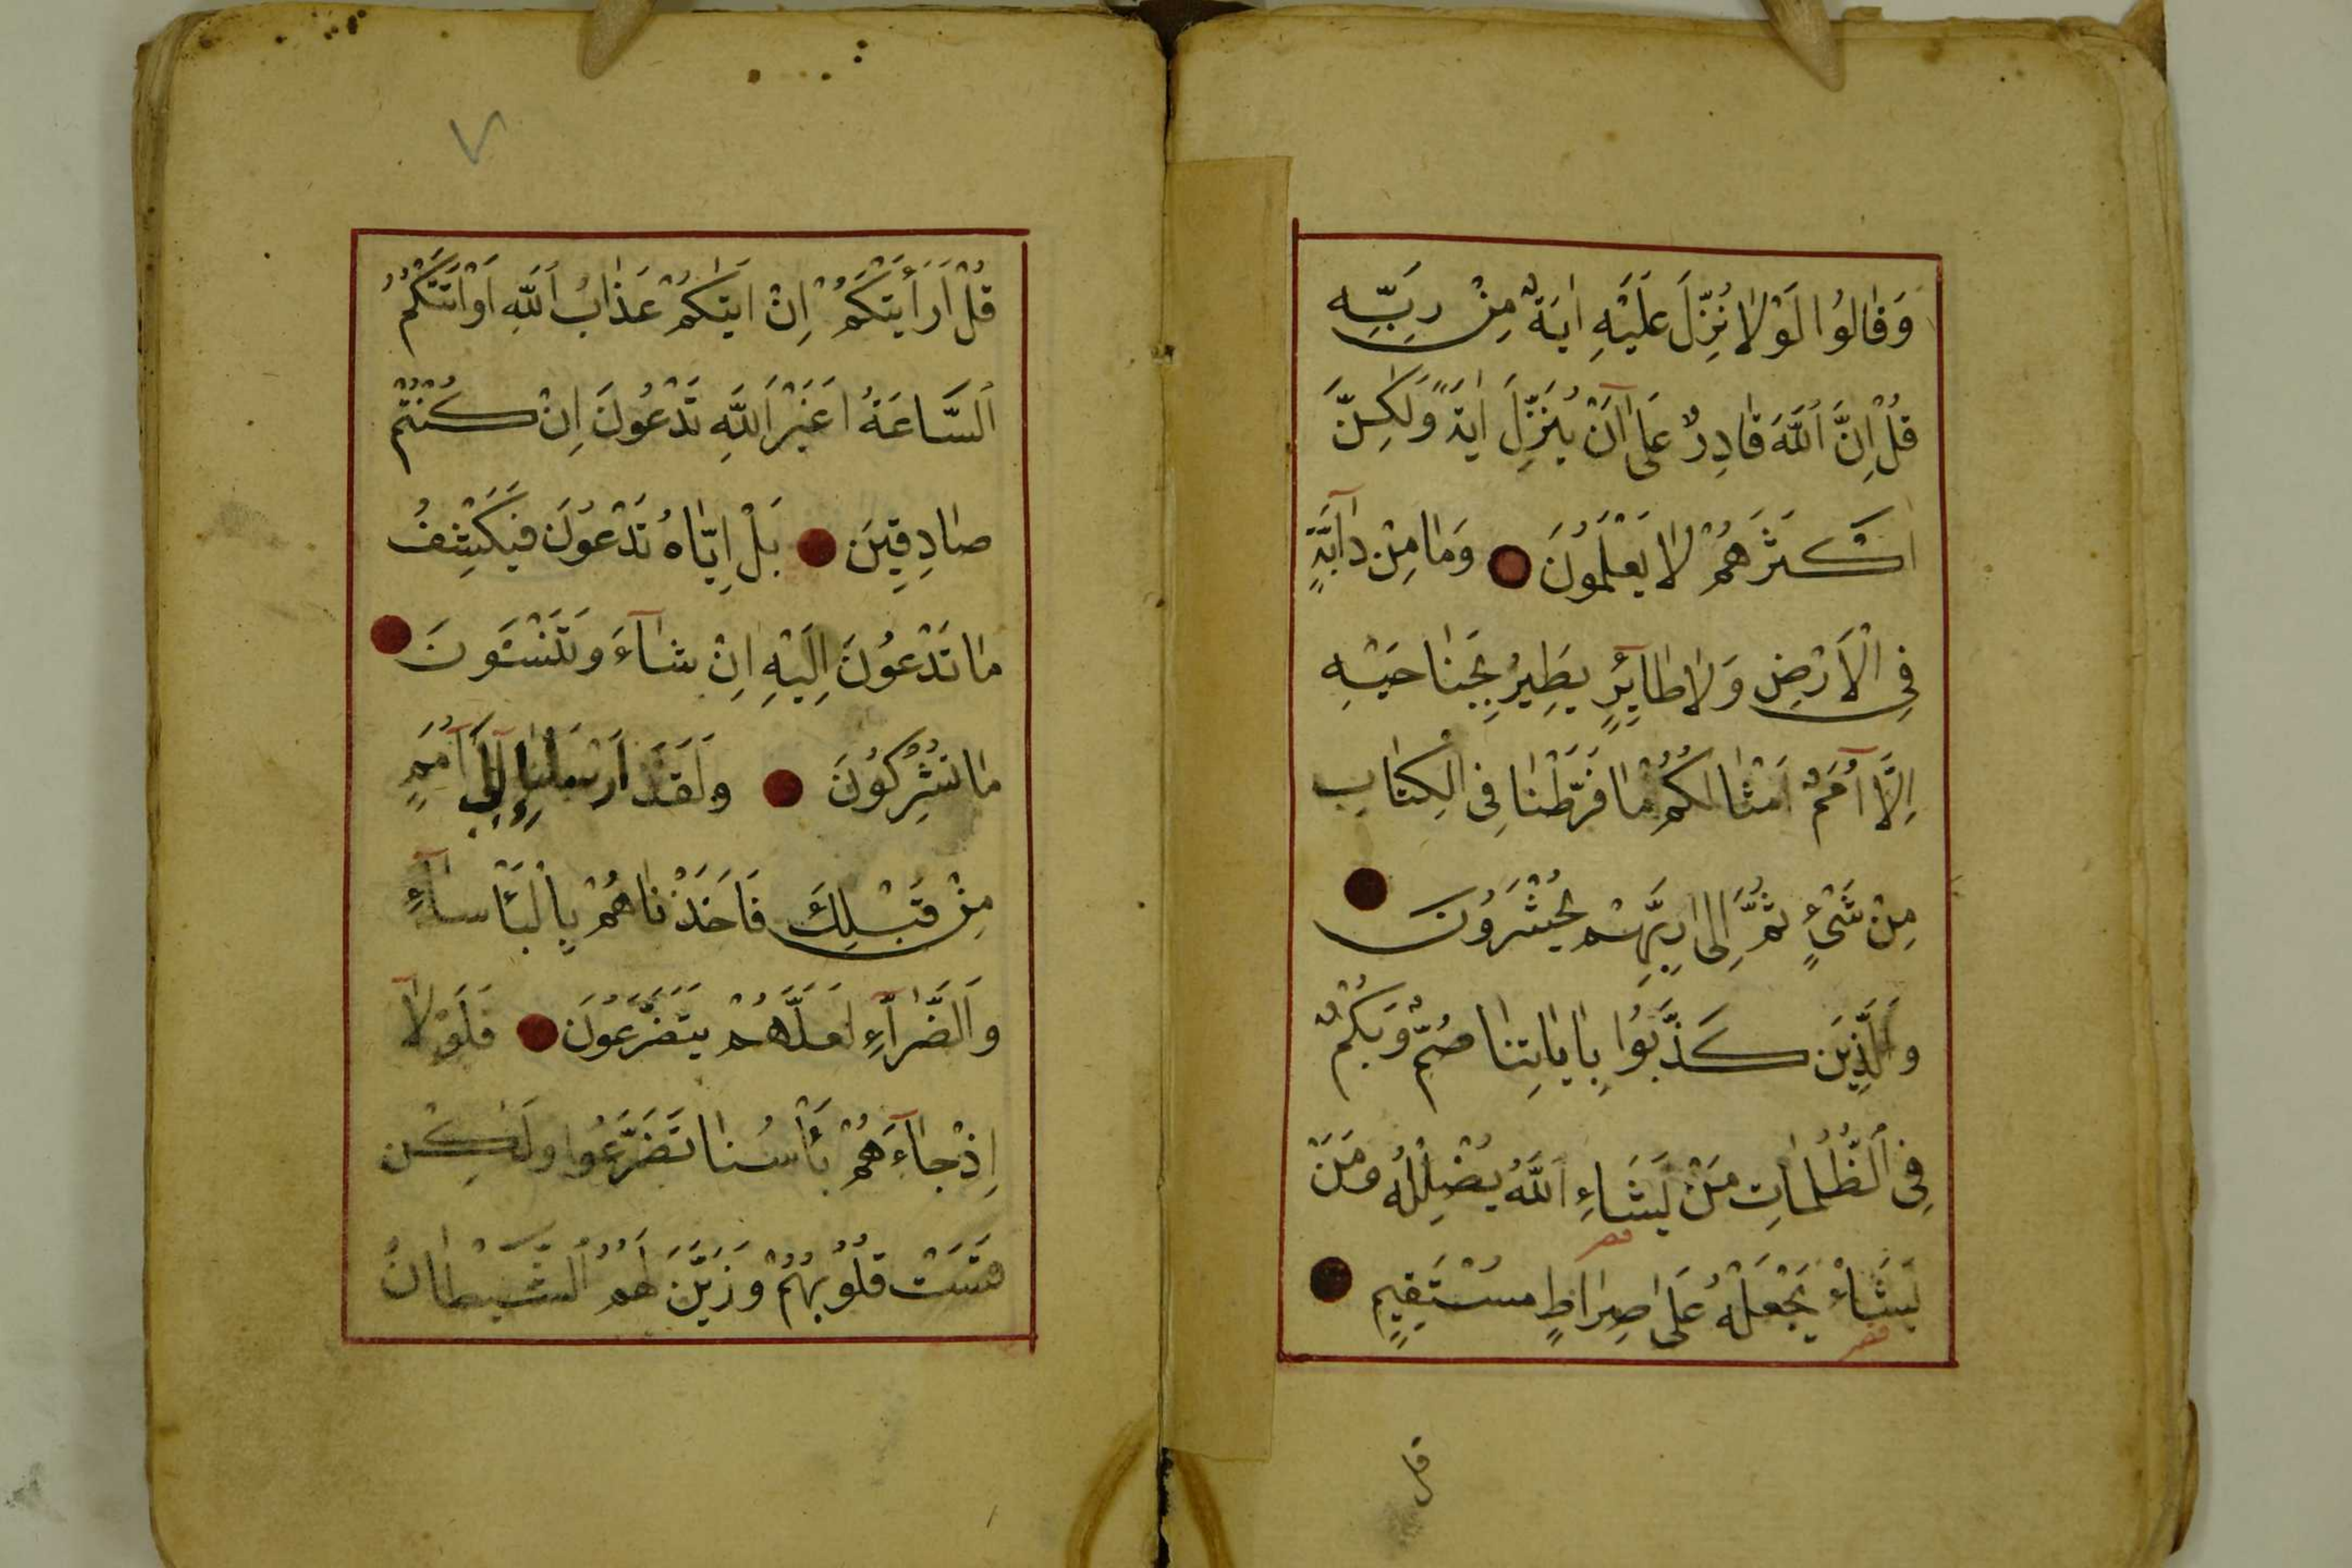 وَقَالُوا لَوْلَا نُزِّلَ عَلَيْهِ اٰيَةٌ مِنْ رَبِّهِ
قُلْ اِنَّ اللّٰهَ قَادِرٌ عَلٰى اَنْ يُنَزِّلَ اٰيَةً وَلٰكِنَّ
اَكْثَرَهُمْ لَا يَعْلَمُونَ وَمَا مِنْ دَابَّةٍ
فِى الْاَرْضِ وَلَا طَائِرٍ يَطِيرُ بِجَنَاحَيْهِ
اِلَّا اُمَمٌ اَمْثَالُكُمْ مَا فَرَّطْنَا فِى الْكِتَابِ
مِنْ شَىْءٍ ثُمَّ اِلٰى رَبِّهِمْ يُحْشَرُونَ
وَالَّذِينَ كَذَّبُوا بِاٰيَاتِنَا صُمٌّ وَبُكْمٌ
فِى الظُّلُمَاتِ مَنْ يَشَاءِ اللّٰهُ يُضْلِلْهُ وَمَنْ
قصر
يَشَأْ يَجْعَلْهُ عَلٰى صِرَاطٍ مُسْتَقِيمٍ
قصر
قل
٧
قُلْ اَرَاَيْتَكُمْ اِنْ اَتٰيكُمْ عَذَابُ اللّٰهِ اَوْ اَتَتْكُمُ
السَّاعَةُ اَغَيْرَ اللّٰهِ تَدْعُونَ اِنْ كُنْتُمْ
صَادِقِينَ بَلْ اِيَّاهُ تَدْعُونَ فَيَكْشِفُ
مَا تَدْعُونَ اِلَيْهِ اِنْ شَاءَ وَتَنْسَوْنَ
مَا تُشْرِكُونَ وَلَقَدْ اَرْسَلْنَا اِلٰى اُمَمٍ
مِنْ قَبْلِكَ فَاَخَذْنَاهُمْ بِالْبَأْسَاءِ
وَالضَّرَّاءِ لَعَلَّهُمْ يَتَضَرَّعُونَ فَلَوْلَا
اِذْ جَاءَهُمْ بَأْسُنَا تَضَرَّعُوا وَلٰكِنْ
قَسَتْ قُلُوبُهُمْ وَزَيَّنَ لَهُمُ الشَّيْطَانُ